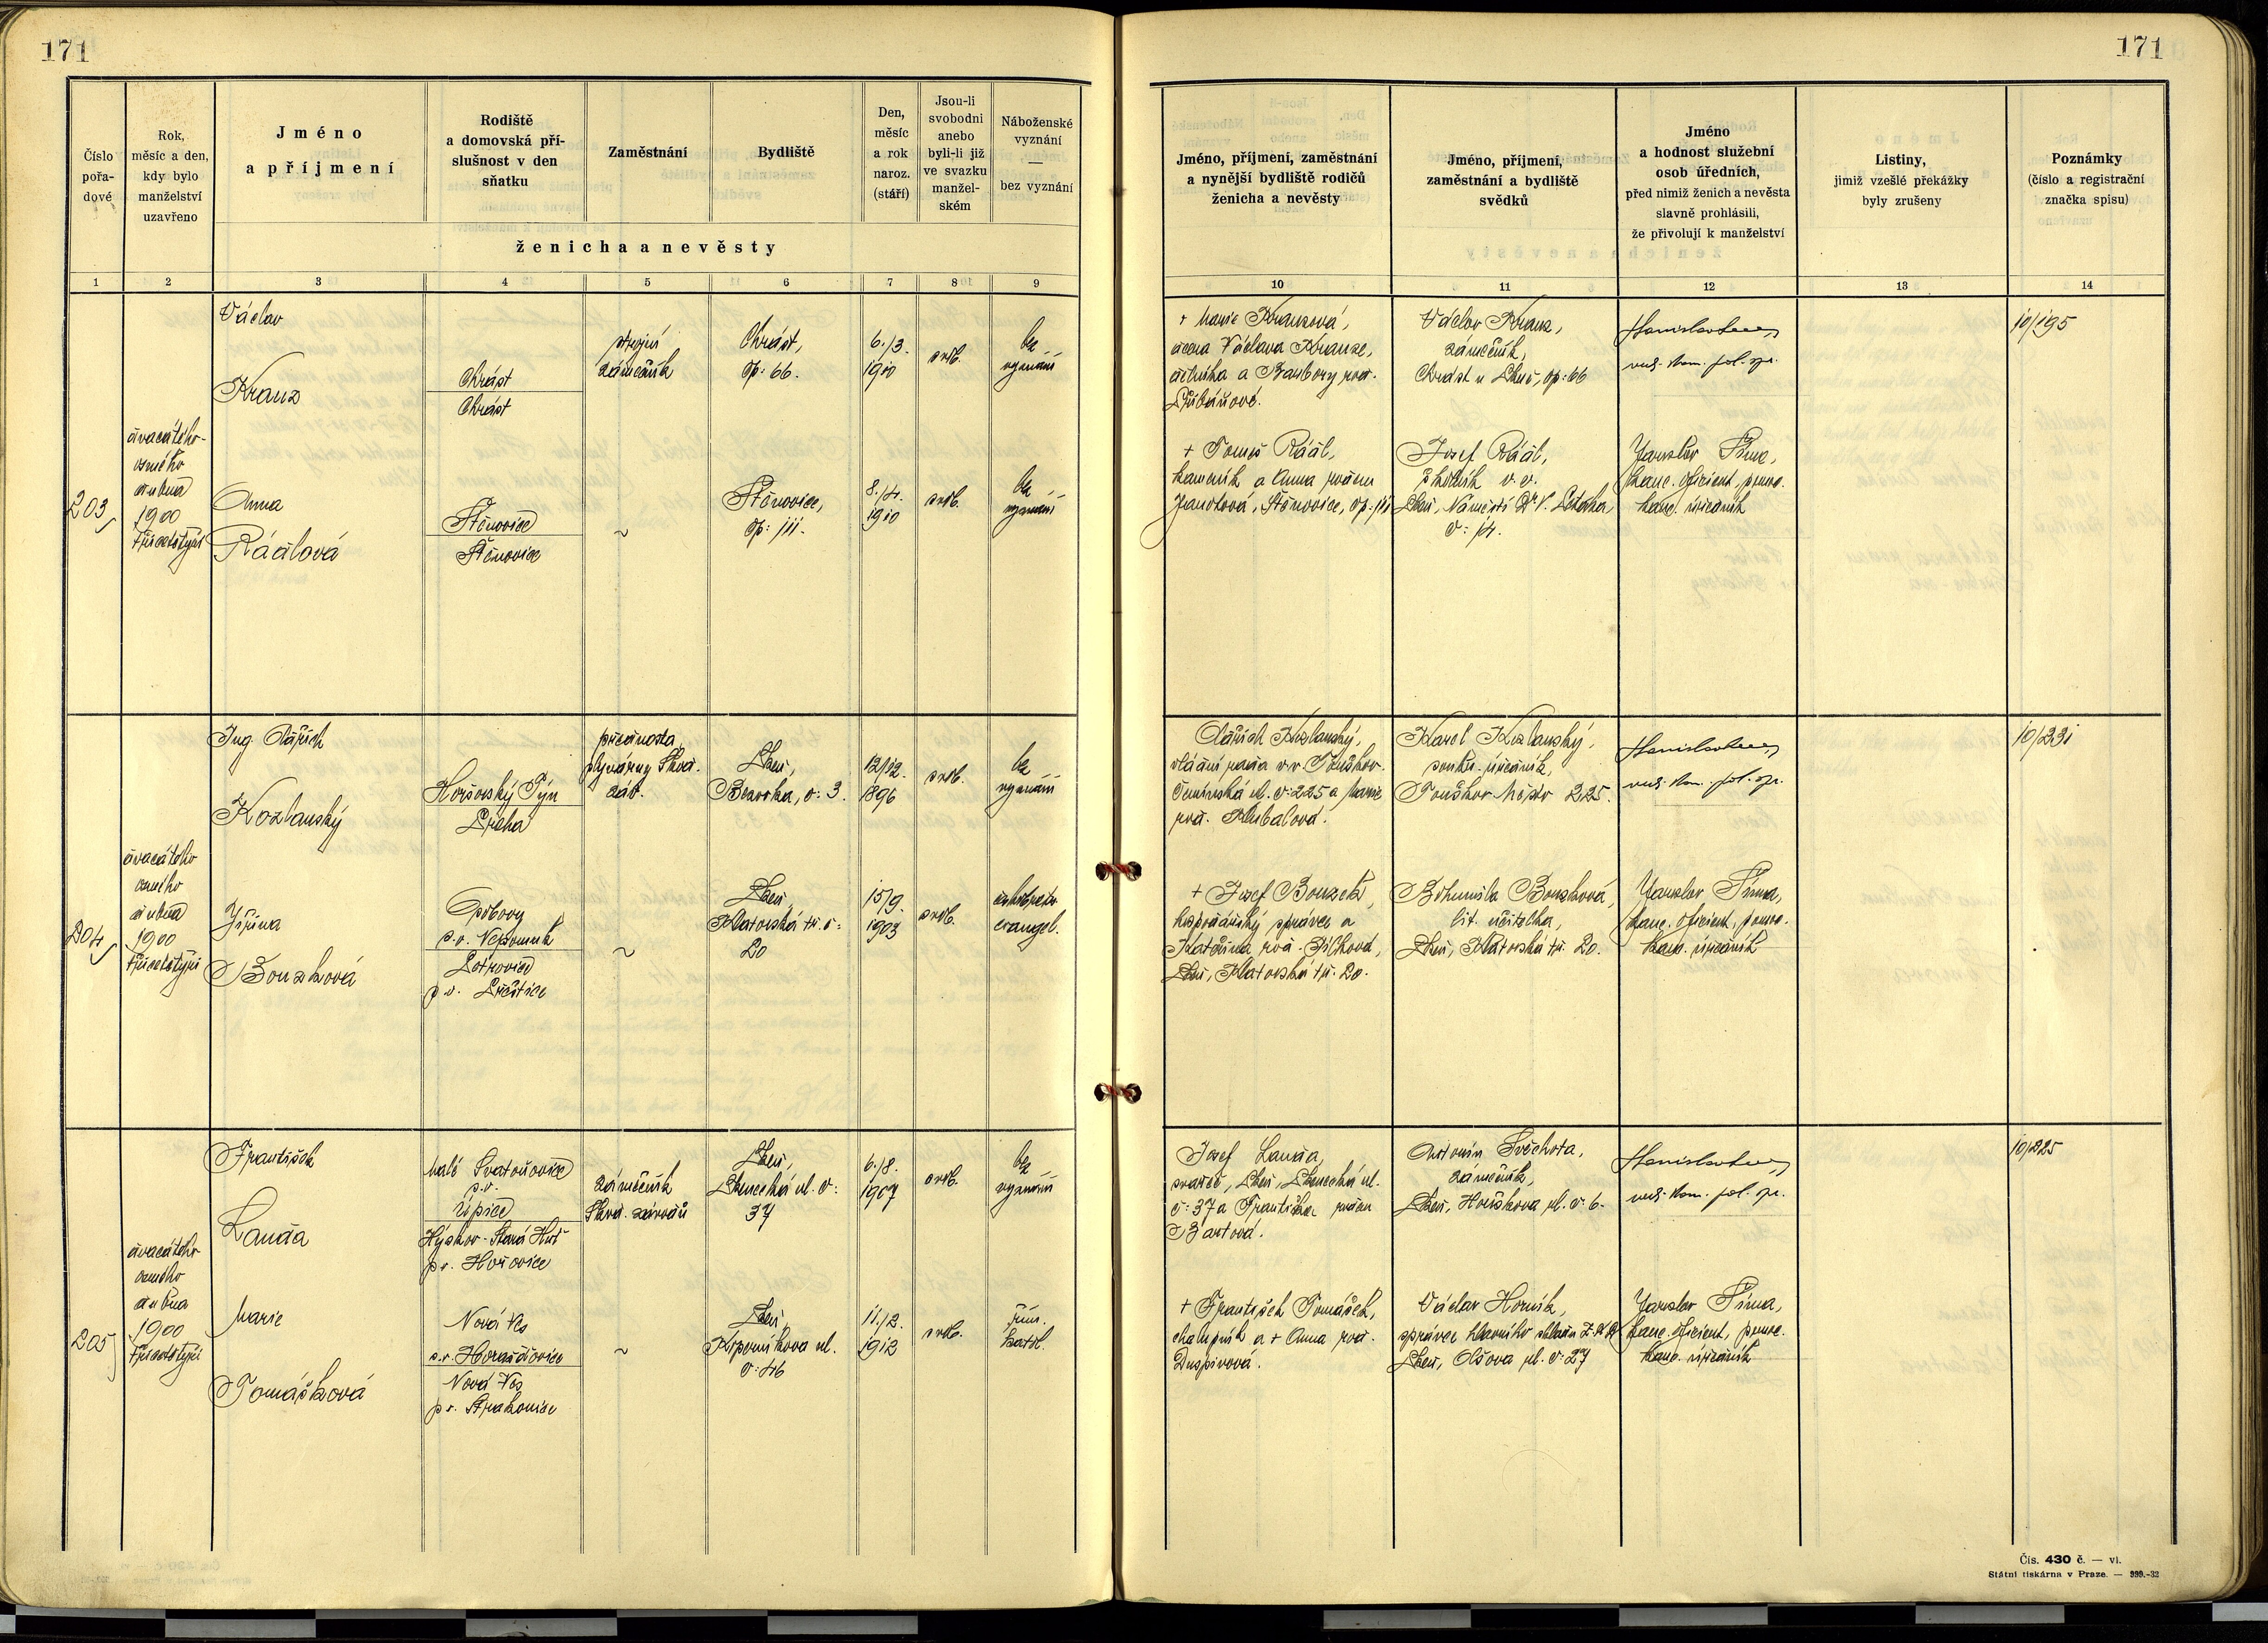 171
171
Číslo
pořa-
dové
Rok,
měsíc a den,
kdy bylo
manželství
uzavřeno
Jméno
a příjmení
Rodiště
a domovská pří-
slušnost v den
sňatku
Zaměstnání
Bydliště
Den,
měsíc
a rok
naroz.
(stáří)
Jsou-li
svobodni
anebo
byli-li již
ve svazku
manžel-
ském
Náboženské
vyznání
—
bez vyznání
ženicha a nevěsty
1 2 3 4 5 6 7 8 9
Jméno, příjmení, zaměstnání
a nynější bydliště rodičů
ženicha a nevěsty
Jméno, příjmení,
zaměstnání a bydliště
svědků
Jméno
a hodnost služební
osob úředních,
před nimiž ženich a nevěsta
slavně prohlásili,
že přivolují k manželství
Listiny,
jimiž vzešlé překážky
byly zrušeny
Poznámky
(číslo a registrační
značka spisu)
10 11 12 13 14
203
dvacátého-
osmého
dubna
1900
třicetčtyři
Václav
Kranz
Chrást
Chrást
strojní
zámečník
Chrást,
čp: 66.
6./3.
1910
svob.
bez
vyznání
Anna
Ráčlová
Štěnovice
Štěnovice
~
Štěnovice,
čp: 111.
8./4.
1910
svob.
bez
vyznání
+ Marie Kranzová,
dcera Václava Kranze,
dělníka a Barbory roz.
+ Tomáš
kameník a Anna rozen
Štěnovice, čp. 111
Václav Kranz,
zámečník,
Chrást u Plzně, čp: 66
Josef
v. v.
Plzeň, Náměstí Dr V. Petáka
č: 14.
rad. kom. pol. spr.
Jaroslav Šíma,
kanc. oficient, pomoc.
kanc. úředník
10/195
204
dvacátého
osmého
dubna
1900
třicetčtyři
Ing. Oldřich
Kozlanský
Horšovský Týn
Praha
přednosta
plynárny Škod.
záv.
Plzeň,
Bezovka, č: 3.
12/12.
1896
svob.
bez
vyznání
Jiřina
Bouzková
p. o. Nepomuk
p. o. Přeštice
~
Plzeň,
Klatovská tř. č:
20
15/9.
1903
svob.
českobratr.
evangel.
Oldřich Kozlanský,
vládní rada v. v. Touškov
ul. č: 225 a Marie
roz.
+ Josef Bouzek,
hospodářský správce a
Kateřina roz.
Plzeň, Klatovská tř. 20.
Karel Kozlanský,
soukr. úředník,
Touškov Město 225.
Bohumila Bouzková,
lit. učitelka,
Plzeň, Klatovská tř. 20.
rad. kom. pol. spr.
Jaroslav Šíma,
kanc. oficient, pomoc.
kanc. úředník
10/221
205
dvacátého
osmého
dubna
1900
třicetčtyři
František
Landa
Malé Svatoňovice
p. o.
Úpice
Hýskov-Stará Huť
p. o. Hořovice
zámečník
Škod. závodů
Plzeň,
Plzenecká ul. č:
37
6./8.
1907
svob.
bez
vyznání
Marie
Tomášková
Nová Ves
p. o. Horažďovice
Nová Ves
p. o. Strakonice
~
Plzeň,
Koperníkova ul.
č: 46
11./2.
1912
svob.
řím.
katol.
Josef Landa,
svářeč, Plzeň, Plzenecká ul.
č: 37 a Františka rozen
Bartová.
+ František Tomášek,
chalupník a + Anna roz.
Duspivová.
Antonín Svěchota,
zámečník,
Plzeň, Houškova ul. č: 6.
Václav Horník,
správce hlavního skladu
Plzeň, Olšova ul. č: 27
rad. kom. pol. spr.
Jaroslav Šíma,
kanc. oficient, pomoc.
kanc. úředník
10/225
Čís. 430 č. — vl.
Státní tiskárna v Praze. — 939.-32